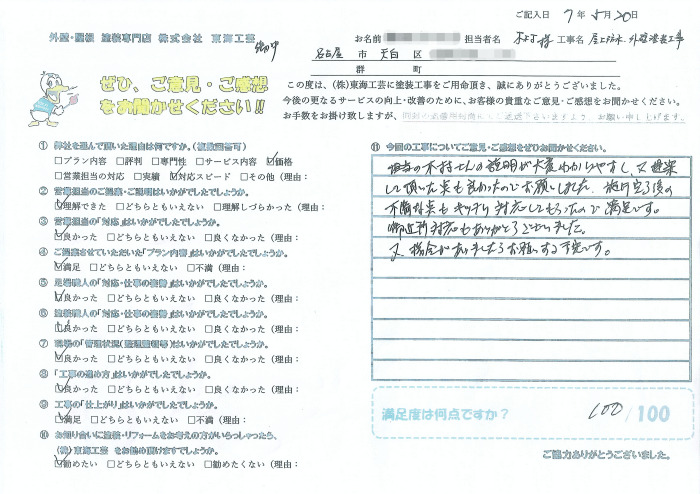 ご記入日 7年5月20日
外壁・屋根 塗装専門店 株式会社 東海工芸 御中
お名前 担当者名 木村様 工事名 屋上防水、外壁塗装工事
名古屋 市 天白 区
郡 町
ぜひ、ご意見・ご感想
をお聞かせください!!
この度は、(株)東海工芸に塗装工事をご用命頂き、誠にありがとうございました。
今後の更なるサービスの向上・改善のために、お客様の貴重なご意見・ご感想をお聞かせください。
お手数をお掛け致しますが、
① 弊社を選んで頂いた理由は何ですか。(複数回答可)
□プラン内容 □評判 □専門性 □サービス内容 ☑価格
□営業担当の対応 □実績 ☑対応スピード □その他(理由:
② 営業担当のご提案・ご説明はいかがでしたでしょうか。
☑理解できた □どちらともいえない □理解しづらかった(理由:
③ 営業担当の「対応」はいかがでしたでしょうか。
☑良かった □どちらともいえない □良くなかった(理由:
④ ご提案させていただいた「プラン内容」はいかがでしたでしょうか。
☑満足 □どちらともいえない □不満(理由:
⑤ 足場職人の「対応・仕事の姿勢」はいかがでしたでしょうか。
☑良かった □どちらともいえない □良くなかった(理由:
⑥ 塗装職人の「対応・仕事の姿勢」はいかがでしたでしょうか。
☑良かった □どちらともいえない □良くなかった(理由:
⑦ 現場の「管理状況(整理整頓等)はいかがでしたでしょうか。
☑良かった □どちらともいえない □良くなかった(理由:
⑧ 「工事の進め方」はいかがでしたでしょうか。
☑良かった □どちらともいえない □良くなかった(理由:
⑨ 工事の「仕上がり」はいかがでしたでしょうか。
☑満足 □どちらともいえない □不満(理由:
⑩ お知り合いに塗装・リフォームをお考えの方がいらっしゃったら、
(株)東海工芸 をお勧め頂けますでしょうか。
☑勧めたい □どちらともいえない □勧めたくない(理由:
⑪ 今回の工事についてご意見・ご感想をぜひお聞かせください。
担当の木村さんの説明が大変わかりやすく、又提案
して頂いた点も良かったのでお願いしました。施行完了後の
不備な点もキッチリ対応してもらったので満足です。
御近所対応もありがとうございました。
又、機会がありましたらお願いする予定です。
満足度は何点ですか? 100/100
ご協力ありがとうございました。